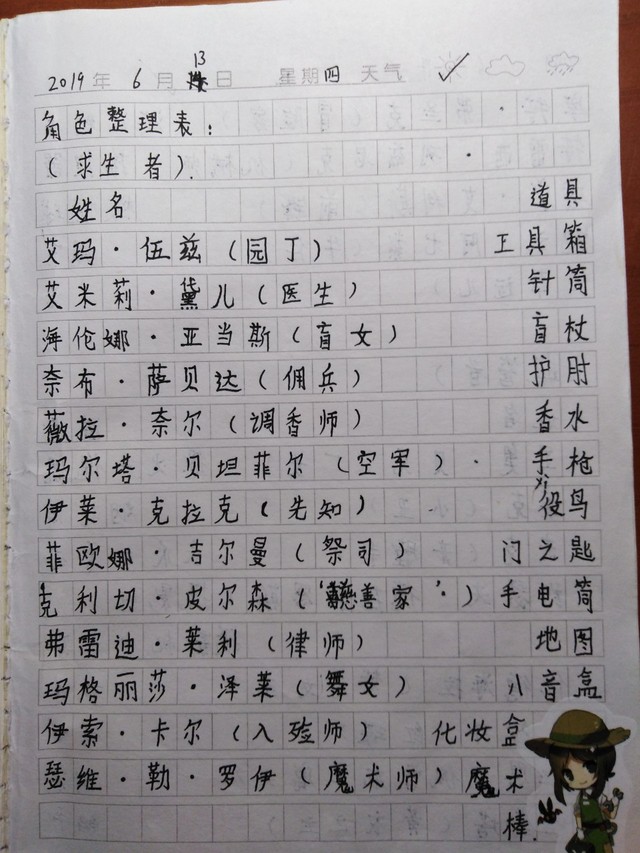 2019年 6月 13日 星期四 天气
角色整理表：
（求生者）.
姓名 道具
艾玛·伍兹（园丁） 工具箱
艾米莉·黛儿（医生） 针筒
海伦娜·亚当斯（盲女） 盲杖
奈布·萨贝达（佣兵） 护肘
薇拉·奈尔（调香师） 香水
玛尔塔·贝坦菲尔（空军）· 手枪
伊莱·克拉克（先知） 役鸟
菲欧娜·吉尔曼（祭司） 门之匙
克利切·皮尔森（“慈善家”·） 手电筒
弗雷迪·莱利（律师） 地图
玛格丽莎·泽莱（舞女） 八音盒
伊索·卡尔（入殓师） 化妆盒
瑟维·勒·罗伊（魔术师） 魔术
棒.